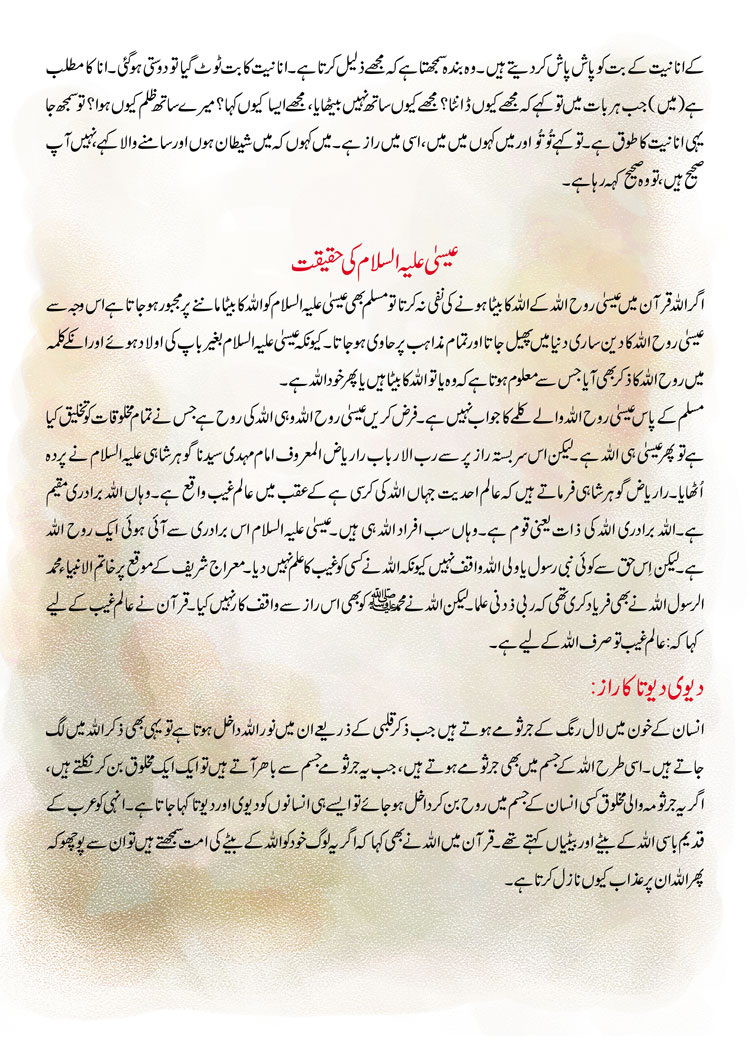 کے انانیت کے بت کو پاش پاش کردیتے ہیں۔ وہ بندہ سمجھتا ہے کہ مجھے ذلیل کرتا ہے۔ انانیت کا بت ٹوٹ گیا تو دوستی ہوگئی۔ انا کا مطلب
ہے (میں) جب ہر بات میں تو کہے کہ مجھے کیوں ڈانٹا؟ مجھے کیوں ساتھ نہیں بیٹھایا، مجھے ایسا کیوں کہا؟ میرے ساتھ ظلم کیوں ہوا؟ تو سمجھ جا
یہی انانیت کا طوق ہے۔ تو کہے تُو تُو اور میں کہوں میں میں، اسی میں راز ہے۔ میں کہوں کہ میں شیطان ہوں اور سامنے والا کہے، نہیں آپ
صحیح ہیں، تو وہ صحیح کہہ رہا ہے۔
عیسیٰ علیہ السلام کی حقیقت
اگر اللہ قرآن میں عیسیٰ روح اللہ کے اللہ کا بیٹا ہونے کی نفی نہ کرتا تو مسلم بھی عیسیٰ علیہ السلام کو اللہ کا بیٹا ماننے پر مجبور ہوجاتا ہے اس وجہ سے
عیسیٰ روح اللہ کا دین ساری دنیا میں پھیل جاتا اور تمام مذاہب پر حاوی ہوجاتا۔ کیونکہ عیسیٰ علیہ السلام بغیر باپ کی اولاد ہوئے اور انکے کلمہ
میں روح اللہ کا ذکر بھی آیا جس سے معلوم ہوتا ہے کہ وہ یا تو اللہ کا بیٹا ہیں یا پھر خود اللہ ہے۔
مسلم کے پاس عیسیٰ روح اللہ والے کلمے کا جواب نہیں ہے۔ فرض کریں عیسیٰ روح اللہ وہی اللہ کی روح ہے جس نے تمام مخلوقات کو تخلیق کیا
ہے تو پھر عیسیٰ ہی اللہ ہے۔ لیکن اس سربستہ راز پر سے رب الارباب را ریاض المعروف امام مہدی سیدنا گوہر شاہی علیہ السلام نے پردہ
اُٹھایا۔ را ریاض گوہر شاہی فرماتے ہیں کہ عالم احدیت جہاں اللہ کی کرسی ہے کے عقب میں عالم غیب واقع ہے۔ وہاں اللہ برادری مقیم
ہے۔ اللہ برادری اللہ کی ذات یعنی قوم ہے۔ وہاں سب افراد اللہ ہی ہیں۔ عیسیٰ علیہ السلام اس برادری سے آئی ہوئی ایک روح اللہ
ہے۔ لیکن اِس حق سے کوئی نبی رسول یا ولی اللہ واقف نہیں کیونکہ اللہ نے کسی کو غیب کا علم نہیں دیا۔ معراج شریف کے موقع پر خاتم الانبیاء محمد
الرسول اللہ نے بھی فریاد کری تھی کہ ربی ذدنی علما۔ لیکن اللہ نے محمد ﷺ کو بھی اس راز سے واقف کار نہیں کیا۔ قرآن نے عالم غیب کے لیے
کہا کہ: عالم غیب تو صرف اللہ کے لیے ہے۔
دیوی دیوتا کا راز:
انسان کے خون میں لال رنگ کے جرثومے ہوتے ہیں جب ذکر قلبی کے ذریعے ان میں نور اللہ داخل ہوتا ہے تو یہی بھی ذکر اللہ میں لگ
جاتے ہیں۔ اسی طرح اللہ کے جسم میں بھی جرثومے ہوتے ہیں، جب یہ جرثومے جسم سے باھر آتے ہیں تو ایک ایک مخلوق بن کر نکلتے ہیں،
اگر یہ جرثومہ والی مخلوق کسی انسان کے جسم میں روح بن کر داخل ہوجائے تو ایسے ہی انسانوں کو دیوی اور دیوتا کہا جاتا ہے۔ انہی کو عرب کے
قدیم باسی اللہ کے بیٹے اور بیٹیاں کہتے تھے۔ قرآن میں اللہ نے بھی کہا کہ اگر یہ لوگ خود کو اللہ کے بیٹے کی امت سمجھتے ہیں تو ان سے پوچھو کہ
پھر اللہ ان پر عذاب کیوں نازل کرتا ہے۔